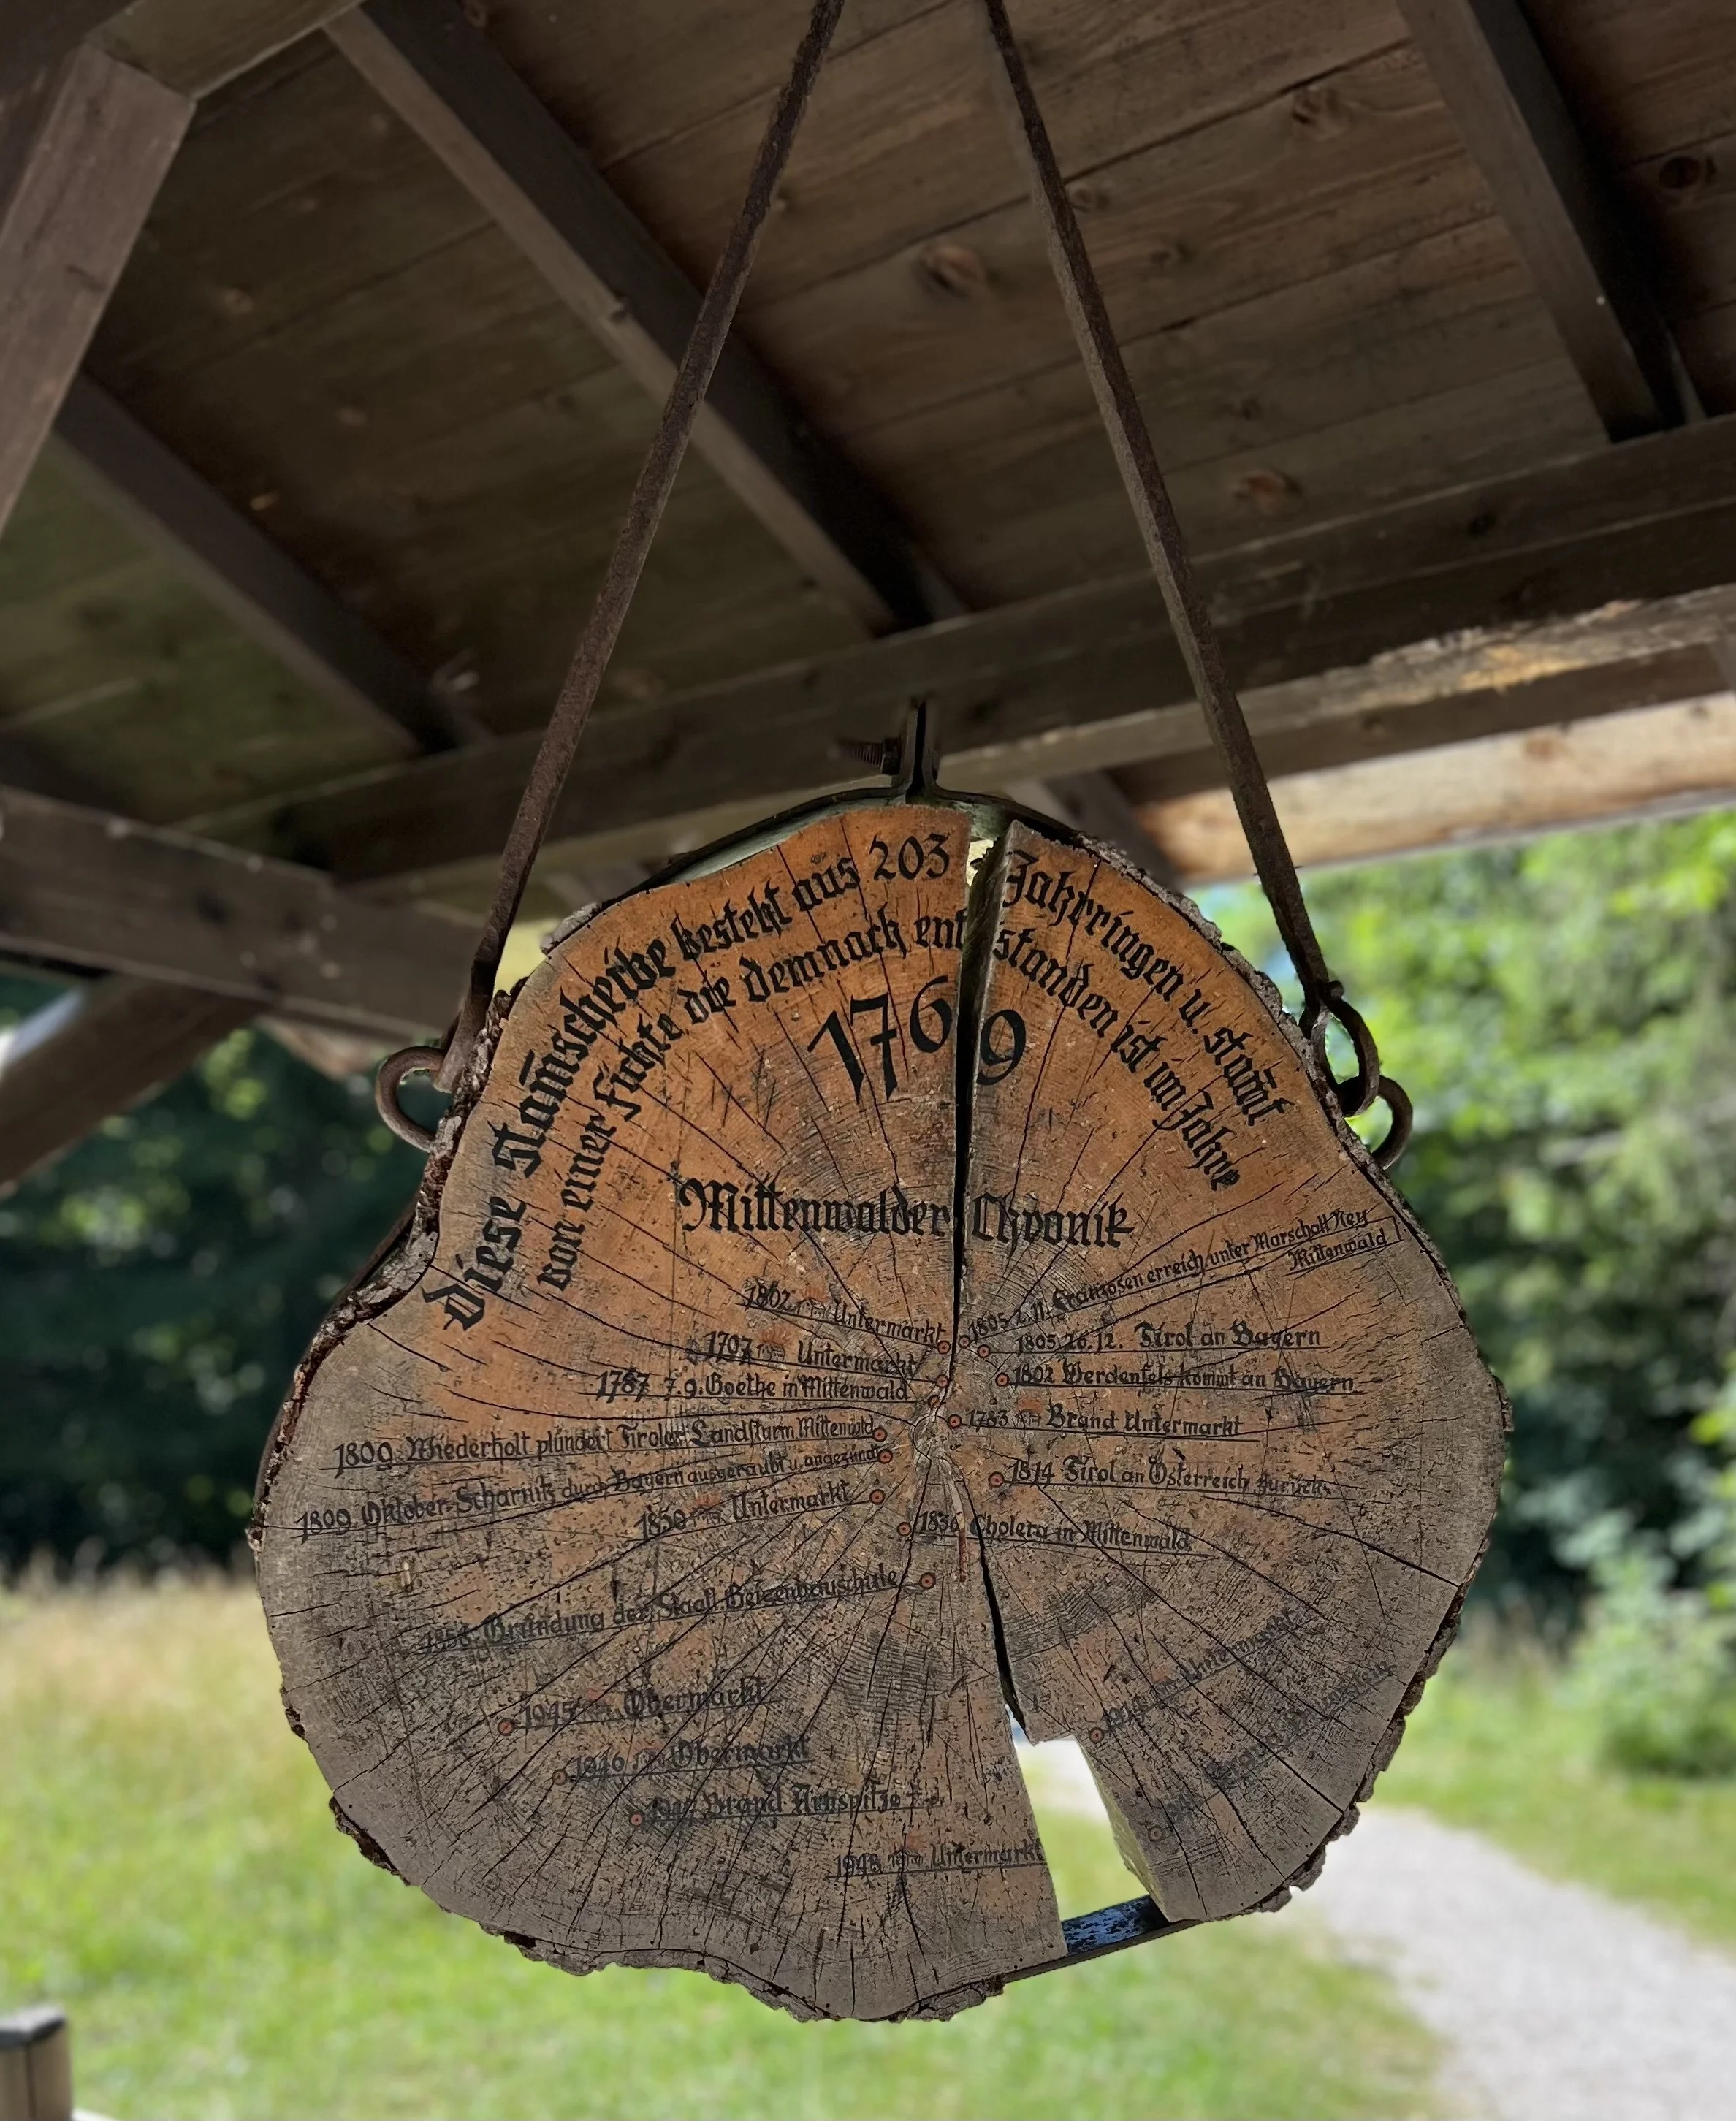 Diese Stam̄scheibe besteht aus 203 Jahrringen u. stam̄t
von einer Fichte die demnach entstanden ist im Jahre
1769
Mittenwalder Chronik
1802 Untermarkt
1707 Untermarkt
1787 7.9. Goethe in Mittenwald
1809 Wiederholt plündert Tiroler Landsturm Mittenwld
1809 Oktober-Scharnitz durch Bayern ausgeraubt u. angezündt
1850 Untermarkt
1858 Gründung der Staatl. Geigenbauschule
1945 Obermarkt
1946 Obermarkt
1947 Brand Arnspitze
1948 Untermarkt
1805 2.11. Franzosen erreich. unter Marschall Ney
Mittenwald
1805 26.12. Tirol an Bayern
1802 Werdenfels kommt an Bayern
1783 Brand Untermarkt
1814 Tirol an Österreich zurück
1836 Cholera in Mittenwald
Untermarkt